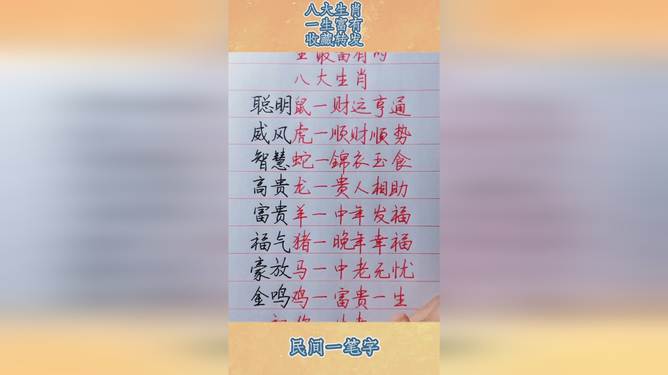 八大生肖
一生富有
收藏转发
最富有的
八大生肖
聪明鼠一财运亨通
威风虎一顺财顺势
智慧蛇一锦衣玉食
高贵龙一贵人相助
富贵羊一中年发福
福气猪一晚年幸福
豪放马一中老无忧
金鸣鸡一富贵一生
民间一笔字